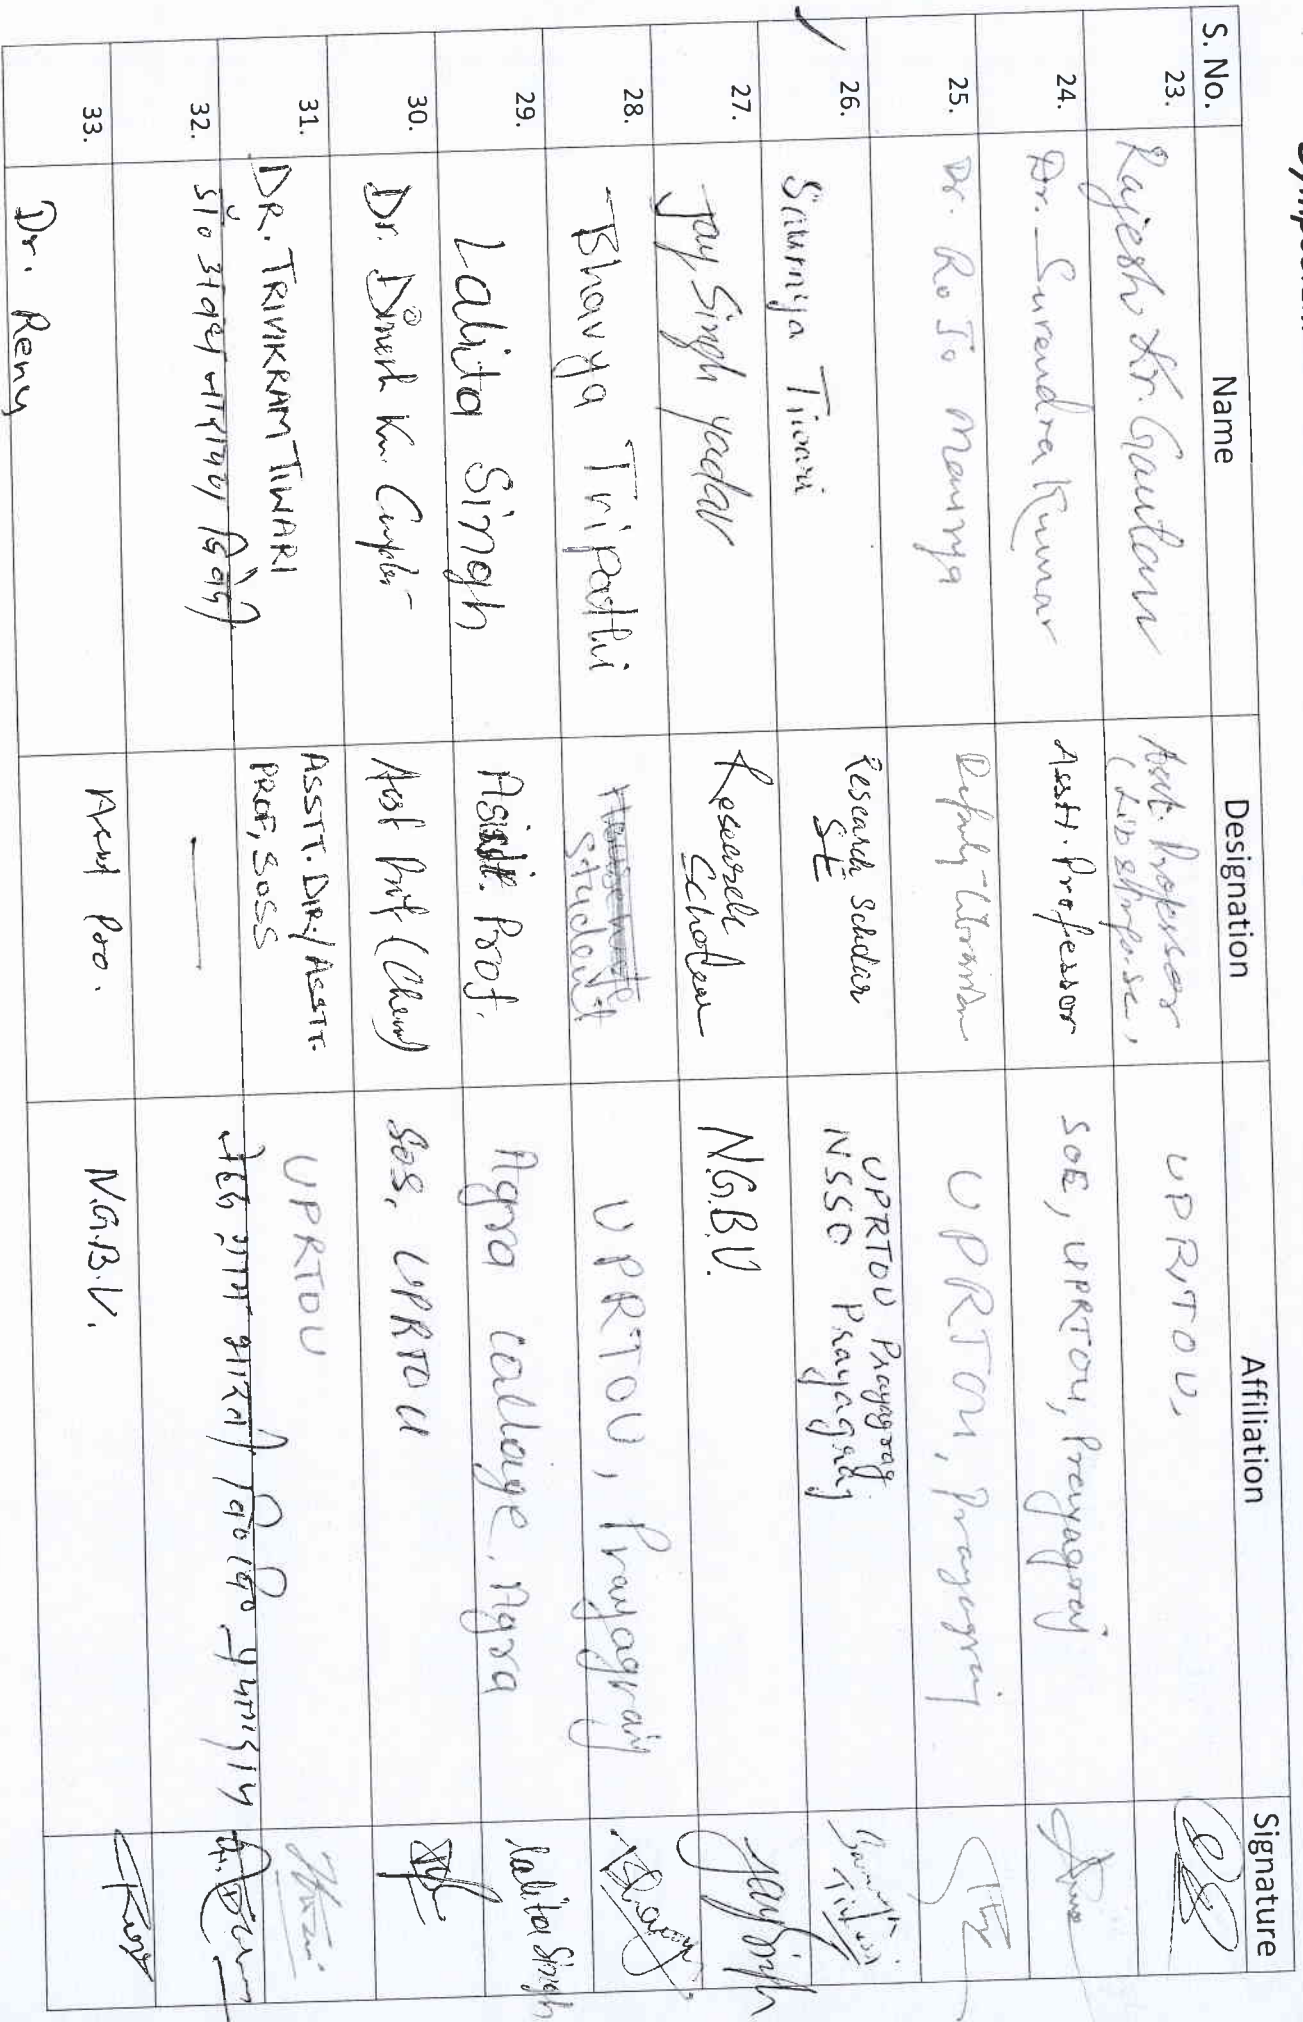 S. No. Name Designation Affiliation Signature
23. Rajesh Kr. Gautam Asstt. Professor UPRTOU,
24. Dr. Surendra Kumar Asstt. Professor SOE, UPRTOU, Prayagraj
25. Dr. R. J. Maurya Deputy Librarian UPRTOU, Prayagraj
26. Saumya Tiwari Research Scholar UPRTOU Prayagraj
SE NSSO Prayagraj
Saumya Tiwari
27. Jay Singh Yadav Research N.G.B.V. Jay Singh
Scholar
28. Bhavya Tripathi Student UPRTOU, Prayagraj
29. Lalita Singh Asstt. Prof. Agra College, Agra lalita Singh
30. Dr. Dinesh Kr. Gupta Asst Prof (Chem) SOS, UPRTOU
31. DR. TRIVIKRAM TIWARI ASSTT. DIR./ASSTT. UPRTOU
PROF, SOSS
32. डॉ०
33. Dr. Renu Asst Pro. N.G.B.V.